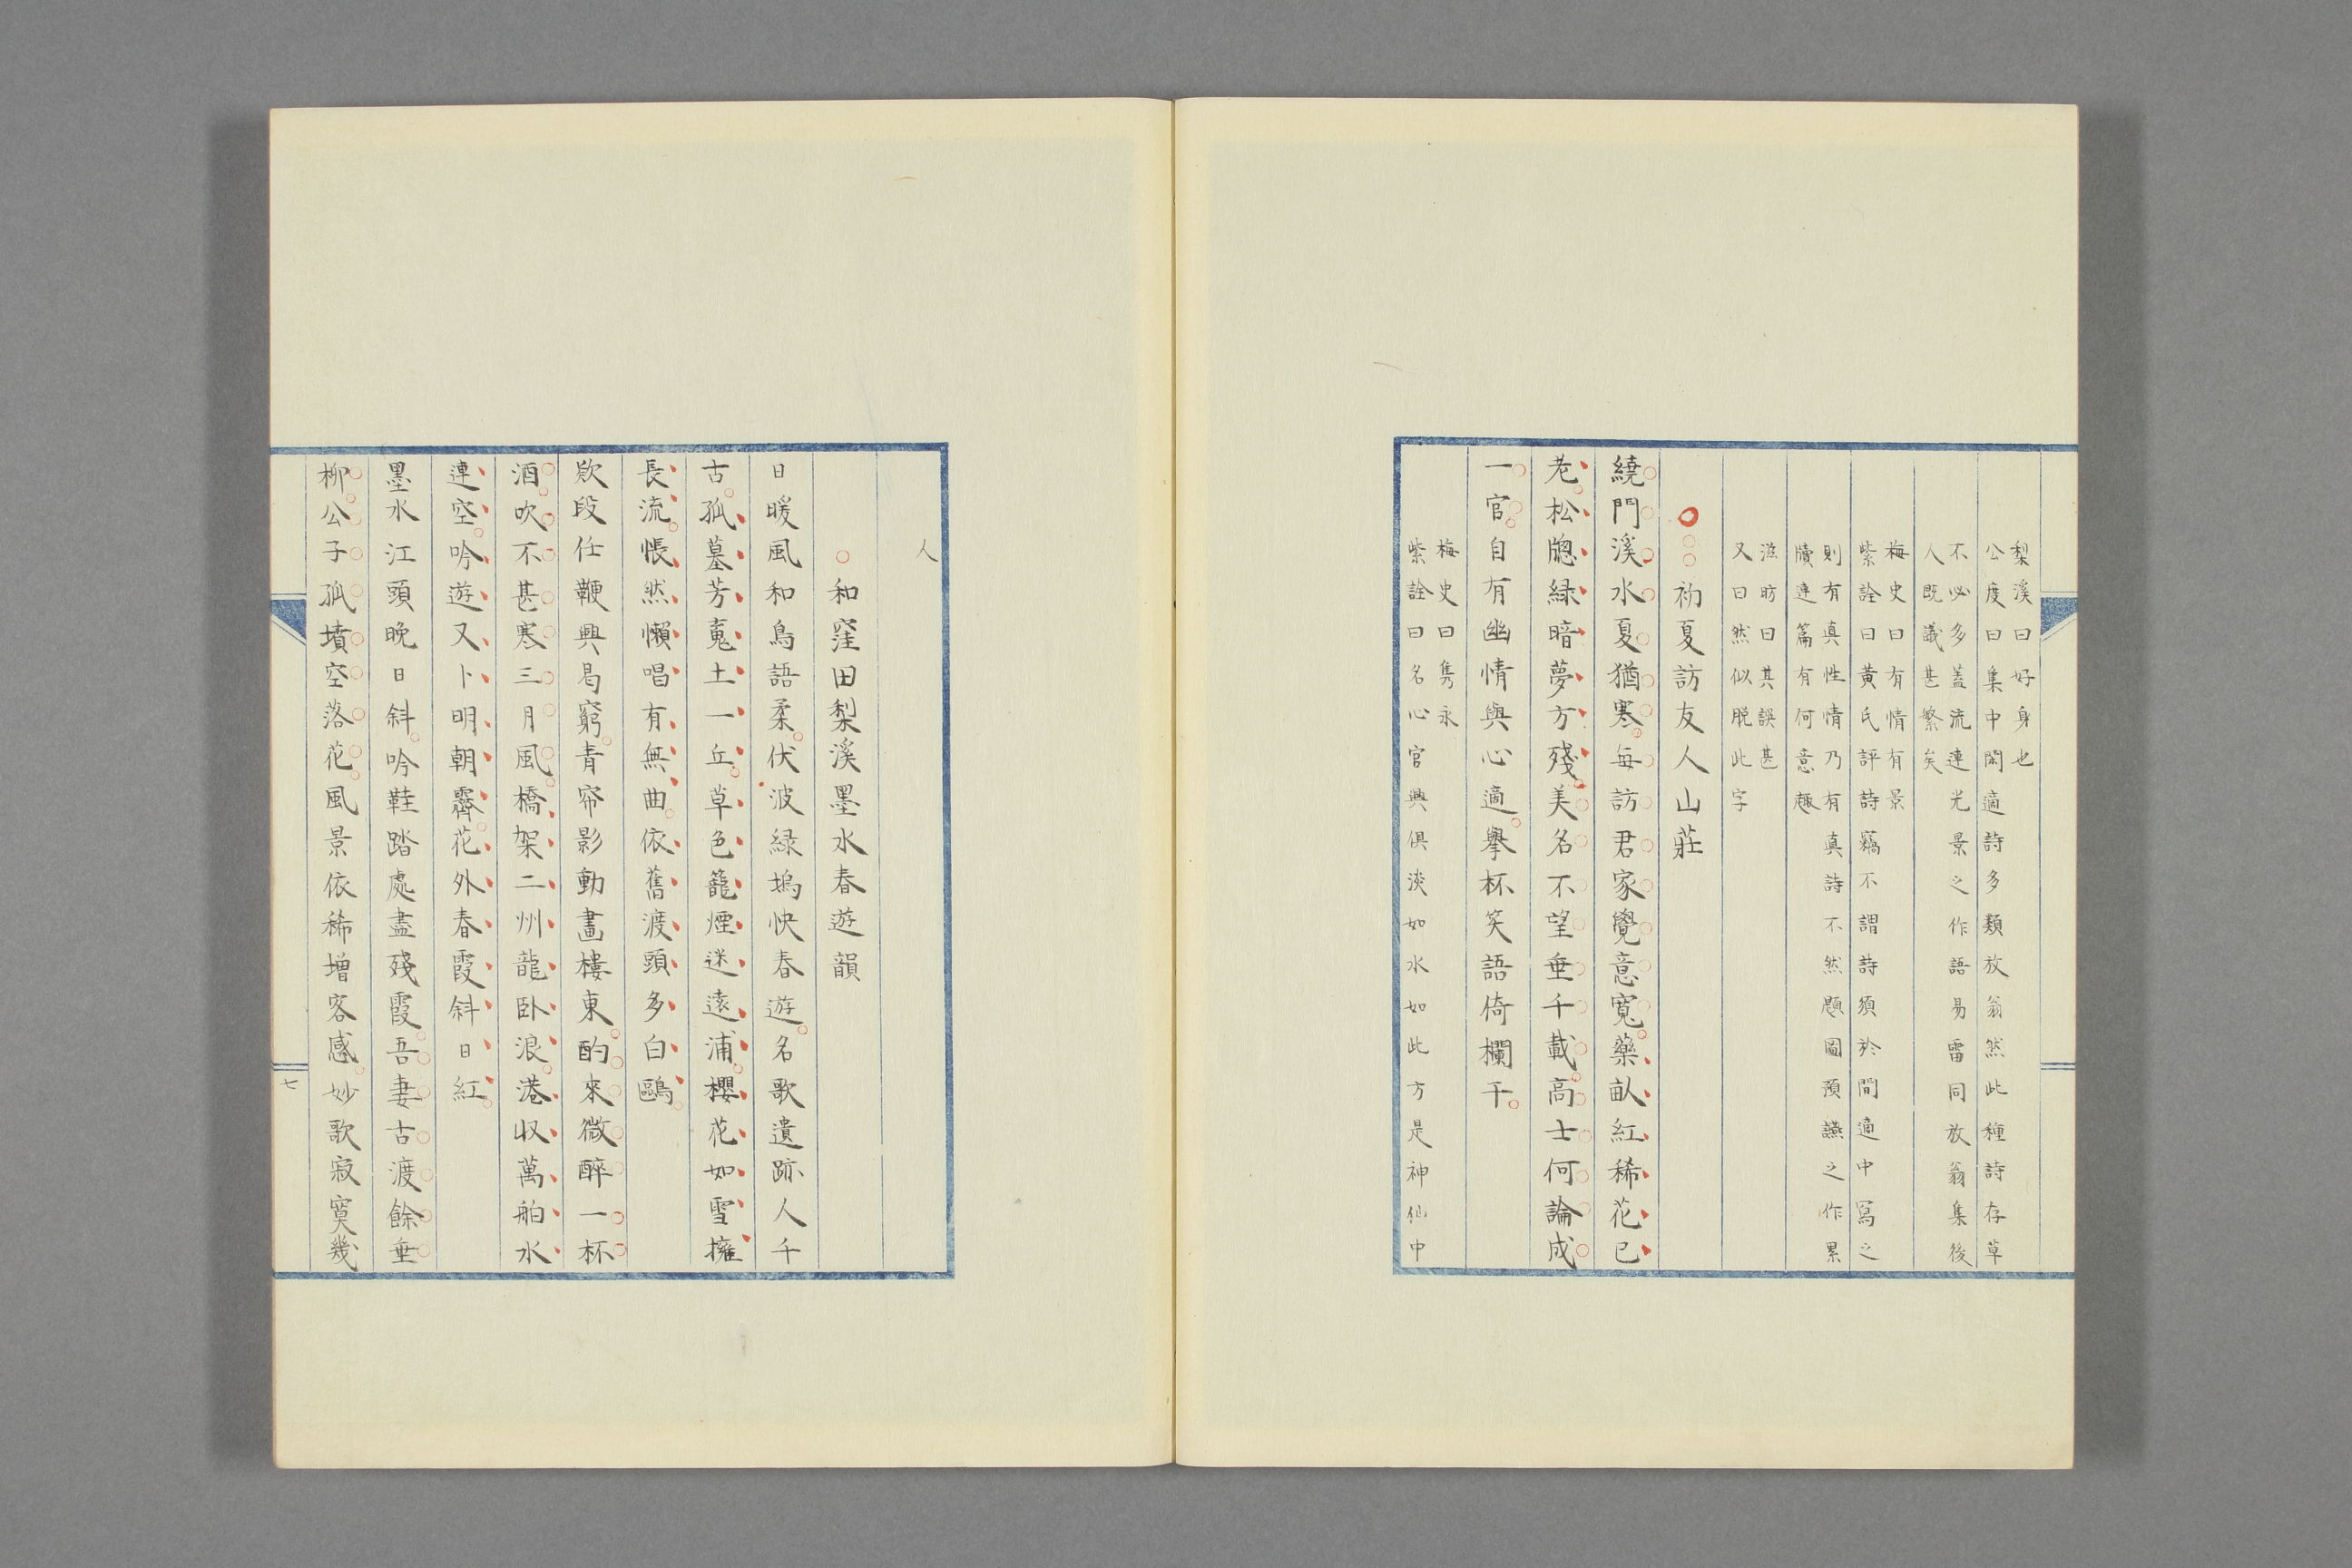 梨溪曰好身也
公度曰集中閑適詩多類放翁然此種詩存草
不必多蓋流連光景之作語易雷同放翁集後
人既議甚繁矣
梅史曰有情有景
紫詮曰黃氏評詩竊不謂詩須於閒適中寫之
則有真性情乃有真詩不然題圖預讌之作累
牘連篇有何意趣
滋昉曰其誤甚
又曰然似脫此字
初夏訪友人山莊
繞門溪水夏猶寒每訪君家覺意寬藥畝紅稀花已
老松牕緑暗夢方殘美名不望垂千載高士何論成
一官自有幽情與心適舉杯笑語倚欄干
梅史曰雋永
紫詮曰名心官興俱淡如水如此方是神仙中
人
和窪田梨溪墨水春遊韻
日暖風和鳥語柔伏波緑塢快春遊名歌遺跡人千
古孤墓芳䰟土一丘草色籠煙迷遠浦櫻花如雪擁
長流悵然懶唱有無曲依舊渡頭多白鷗
欵段任鞭興曷窮青帘影動畫樓東酌來微醉一杯
酒吹不甚寒三月風橋架二州龍卧浪港収萬舶水
連空吟遊又卜明朝霽花外春霞斜日紅
墨水江頭晚日斜吟鞋踏處盡殘霞吾妻古渡餘垂
柳公子孤墳空落花風景依稀增客感妙歌寂寞幾
七